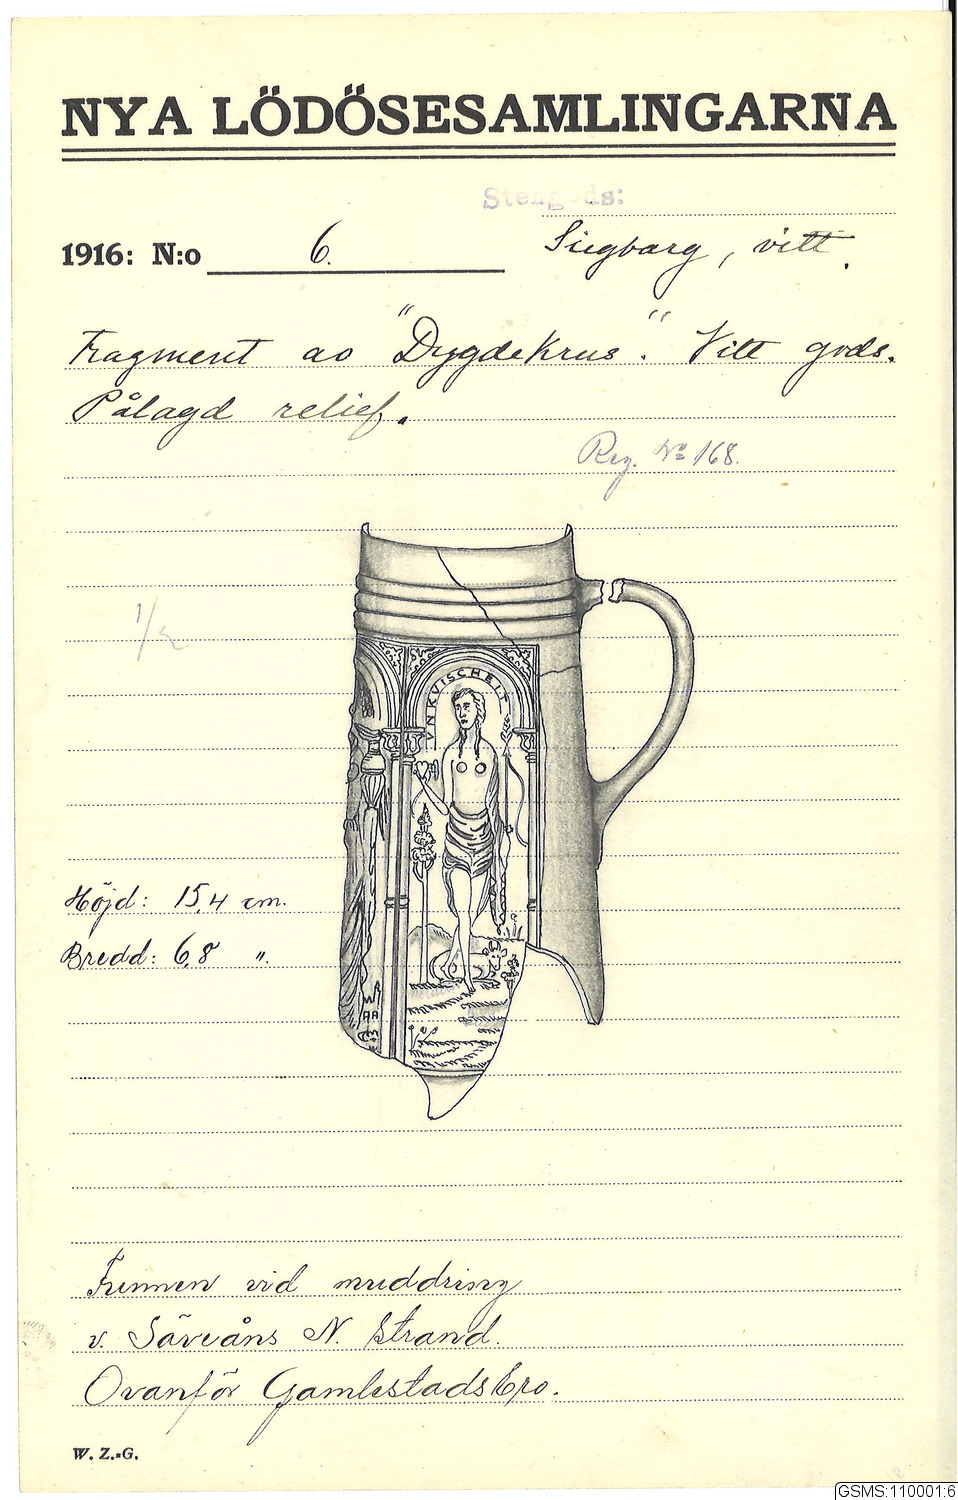 NYA LÖDÖSESAMLINGARNA
Stengods:
1916: N:o 6. Siegbarg, vitt.
Fragment av "Dygdekrus". Vitt gods.
Pålagd relief.
Reg. No 168.
1/2
VNKVISCHEIT
Höjd: 15,4 cm.
Bredd: 6,8 ".
Funnen vid muddring
v. Säveåns N. Strand.
Ovanför Gamlestadsbro.
W. Z.-G.
GSMS:110001:6